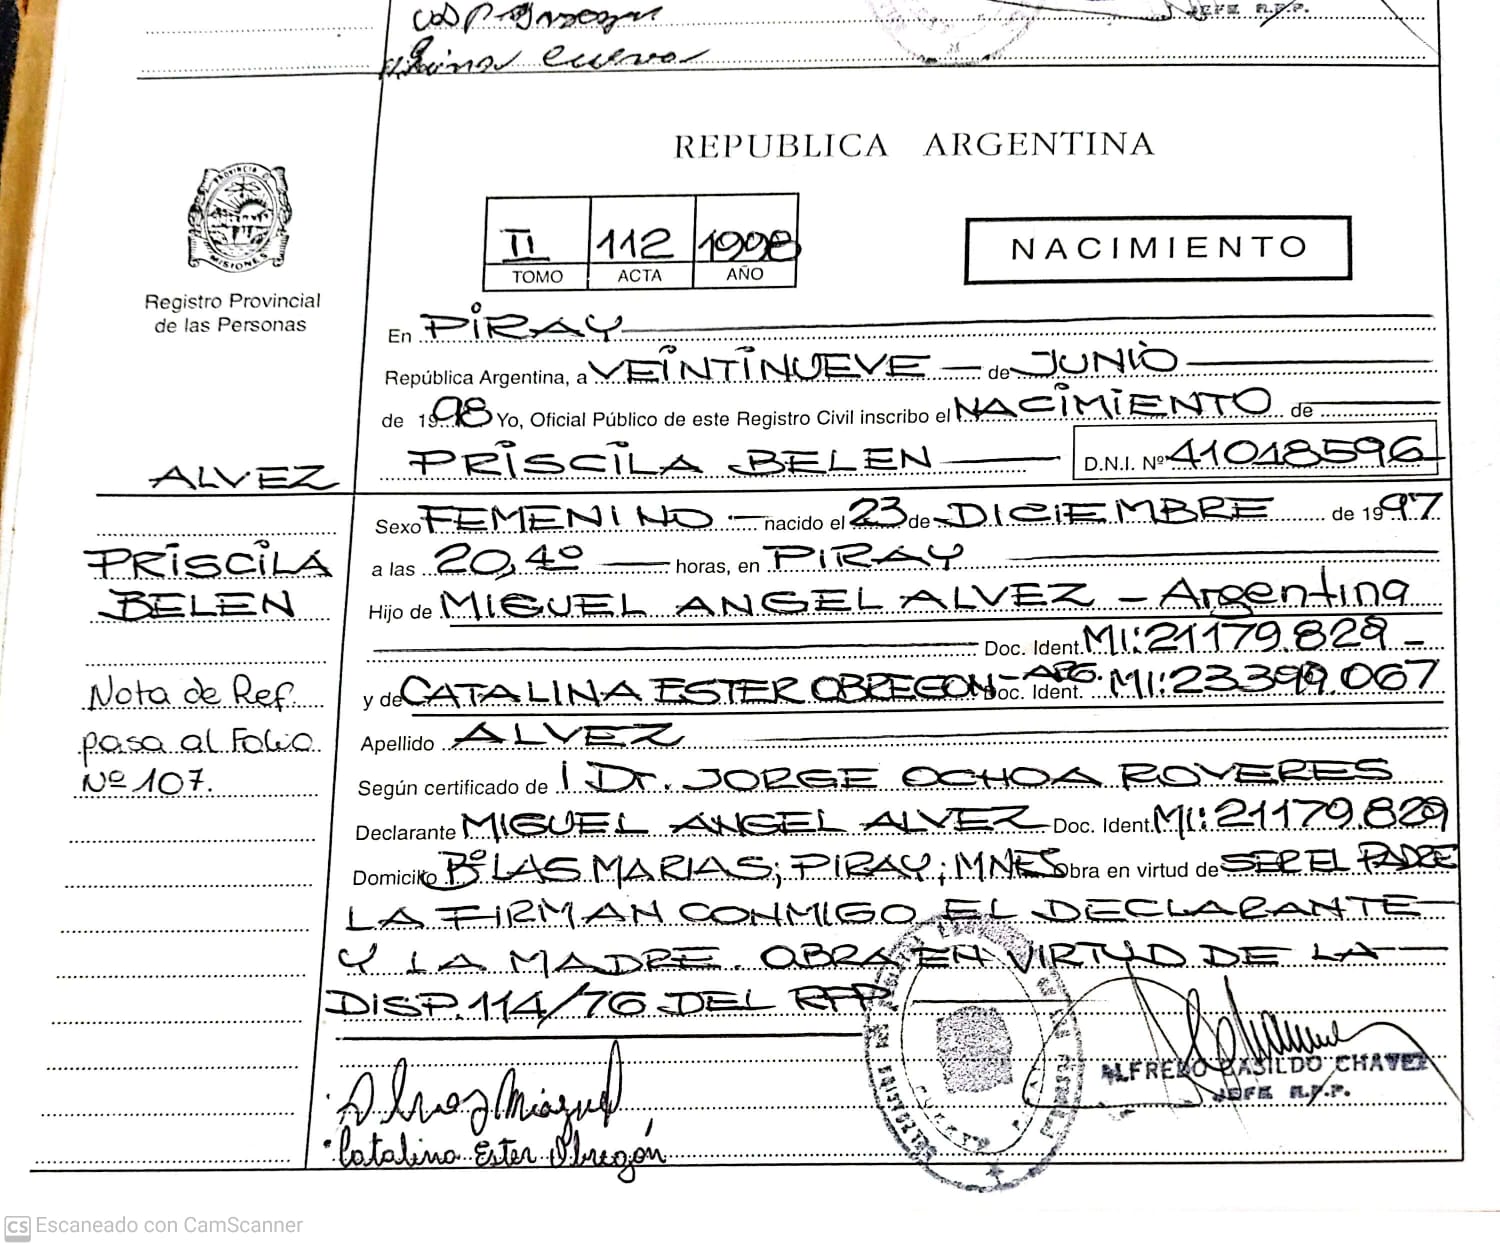 JEFE R.P.P.
Cueva
REPUBLICA ARGENTINA
PROVINCIA D
MISIONES
Registro Provincial
de las Personas
II 112 1998
TOMO ACTA AÑO
NACIMIENTO
En PIRAY
República Argentina, a VEINTINUEVE — de JUNIO
de 1998 Yo, Oficial Público de este Registro Civil inscribo el NACIMIENTO de
PRISCILA BELEN D.N.I. Nº 41018596
ALVEZ
Sexo FEMENINO — nacido el 23 de DICIEMBRE de 1997
PRISCILA
BELEN
a las 20,40 horas, en PIRAY
Hijo de MIGUEL ANGEL ALVEZ - Argentina
Doc. Ident. MI:21179.829 -
y de CATALINA ESTER OBREGON - ARG. Doc. Ident. MI:23399.067
Nota de Ref.
pasa al Folio
Nº 107.
Apellido ALVEZ
Según certificado de Dr. JORGE OCHOA ROVERES
Declarante MIGUEL ANGEL ALVEZ Doc. Ident. MI:21179.829
Domicilio Bº LAS MARIAS; PIRAY; MNES Obra en virtud de SER EL PADRE
LA FIRMAN CONMIGO EL DECLARANTE
Y LA MADRE. OBRA EN VIRTUD DE LA
DISP. 114/76 DEL RPP
ALFREDO BASILDO CHAVEZ
JEFE R.P.P.
Alvez Miguel
Catalina Ester Obregón
CS Escaneado con CamScanner